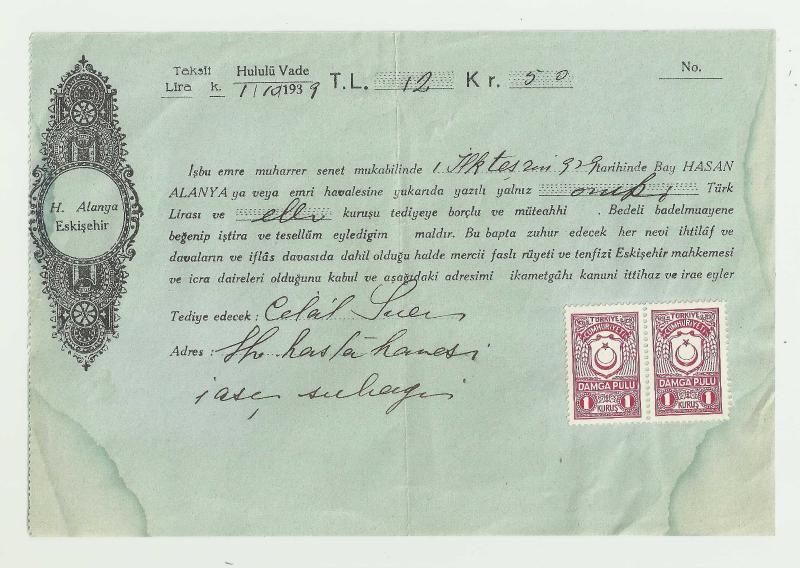 Taksit Hululü Vade T.L. 12 Kr. 50 No.
Lira k. 1/10/1939
H. Alanya
Eskişehir
İşbu emre muharrer senet mukabilinde 1 İlk teşrin 939 tarihinde Bay HASAN
ALANYA ya veya emri havalesine yukarıda yazılı yalnız oniki Türk
Lirası ve elli kuruşu tediyeye borçlu ve müteahhi . Bedeli badelmuayene
beğenip iştira ve tesellüm eyledigim maldır. Bu bapta zuhur edecek her nevi ihtilâf ve
davaların ve iflâs davasıda dahil olduğu halde mercii faslı rüyeti ve tenfizi Eskişehir mahkemesi
ve icra daireleri olduğunu kabul ve aşağıdaki adresimi ikametgâhı kanuni ittihaz ve irae eyler
Tediye edecek : Celâl
Adres : hastahanesi
iaşe subayı
TÜRKİYE CUMHURİYETİ
DAMGA PULU
1 KURUŞ 1
TÜRKİYE CUMHURİYETİ
DAMGA PULU
1 KURUŞ 1